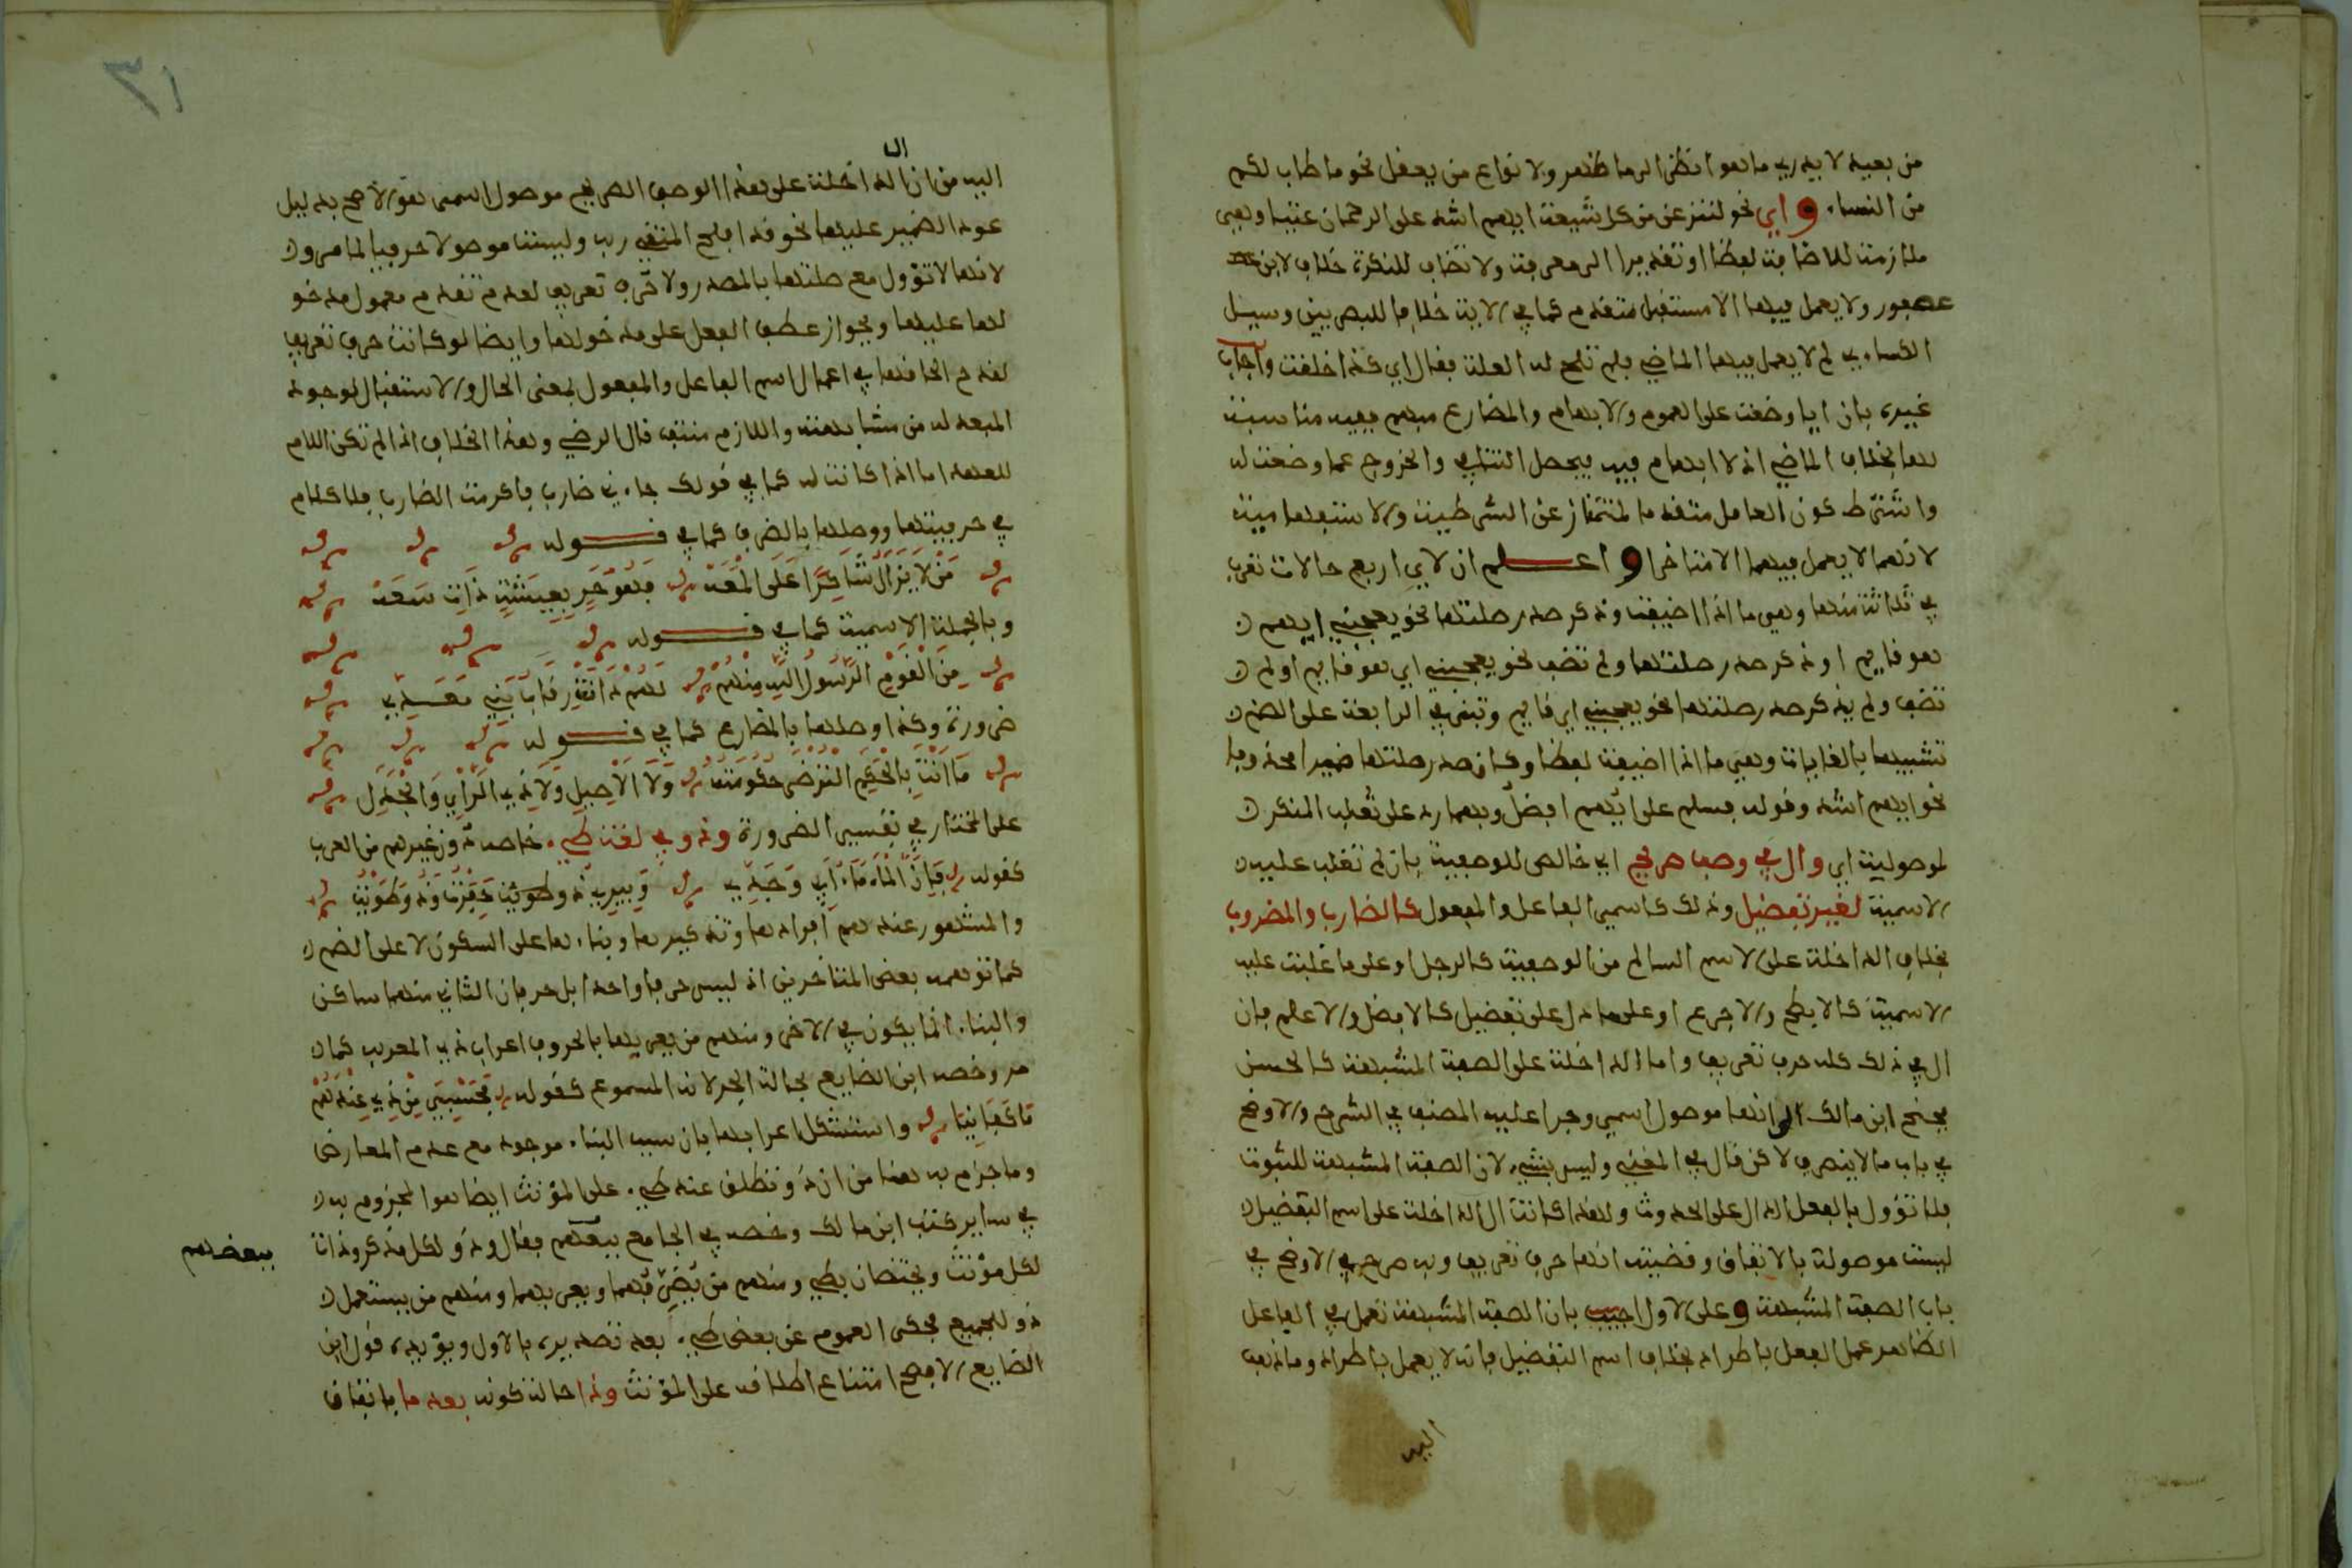 من بعيد لا يدري ما هو انظر الى ما ظهر ولانواع من يعقل نحو ما طاب لكم
من النساء و اي نحو لننزعن من كل شيعة ايهم اشد على الرحمان عتيا وهي
ملازمة للاضافة لفظا او تقديرا الى معرفة ولا تضاف للنكرة خلافا لابن
عصفور ولا يعمل فيها الا مستقبل متقدم كما في الاية خلافا للبصريين وسيل
الكساءي لم لا يعمل فيها الماضي فلم تلح له العلة فقال اي كذا خلقت واجاب
غيره بان ايا وضعت على العموم والابهام والمضارع مبهم ففيه مناسبة
لها بخلاف الماضي اذ لا ابهام فيه فيحصل التنافي والخروج عما وضعت له
واشترط كون العامل متقدما لتمتاز عن الشرطية والاستفهامية
لانهما لا يعمل فيهما الا متاخرا و اعلم ان لاي اربع حالات تعرب
في ثلاثة منها وهي ما اذا اضيفت وذكر صدر صلتها نحو يعجبني ايهم
هو قايم او ذكر صدر صلتها ولم تضف نحو يعجبني اي هو قايم او لم
تضف ولم يذكر صدر صلتها نحو يعجبني اي قايم وتبنى في الرابعة على الضم
تشبيها بالغايات وهي ما اذا اضيفت لفظا وكان صدر صلتها ضميرا محذوفا
نحو ايهم اشد وقوله فسلم على ايهم افضل وبهما رد على ثعلب المنكر
لموصولية اي وال في وصف صريح اي خالص للوصفية بان لم تغلب عليه
الاسمية لغير تفضيل وذلك كاسمي الفاعل والمفعول كالضارب والمضروب
بخلاف الداخلة على الاسم السالم من الوصفية كالرجل او على ما غلبت عليه
الاسمية كالابطح والاجرع او على ما دل على تفضيل كالافضل والاعلم فان
ال في ذلك كله حرف تعريف واما الداخلة على الصفة المشبهة كالحسن
فجنح ابن مالك الى انها موصول اسمي وجرا عليه المصنف في الشرح والاوضح
في باب ما لا ينصرف لاكن قال في المغني وليس بشيء لان الصفة المشبهة للثبوت
فلا تؤول بالفعل الدال على الحدوث ولهذا كانت ال الداخلة على اسم التفضيل
ليست موصولة بالاتفاق وقضيته انها حرف تعريف وبه صرح في الاوضح في
باب الصفة المشبهة و على الاول اجيب بان الصفة المشبهة تعمل في الفاعل
الظاهر عمل الفعل باطراد بخلاف اسم التفضيل فانه لا يعمل باطراد وما ذهب
اليه
٣١
ال
اليه من ان الداخلة على هذا الوصف الصريح موصول اسمي هو الاصح بدليل
عود الضمير عليها نحو قد افلح المتقي ربه وليست موصولا حرفيا لما مر و
لانها لا تؤول مع صلتها بالمصدر ولا حرف تعريف لعدم تقدم معمول مدخو
لها عليها ولجواز عطف الفعل على مدخولها وايضا لو كانت حرف تعريف
لقدح الحاقها في اعمال اسم الفاعل والمفعول بمعنى الحال والاستقبال لوجود
المبعد له من مشابهته واللازم منتف قال الرضي وهذا الخلاف اذا لم تكن اللام
للعهد اما اذا كانت له كما في قولك جاءني ضارب فاكرمت الضارب فلا كلام
في حرفيتها ووصلها بالظرف كما في قوله
مَنْ لَا يَزَالُ شَاكِرًا عَلَى الْمَعَهْ فَهُوَ حَرٍ بِعِيشَةٍ ذَاتِ سَعَهْ
وبالجملة الاسمية كما في قوله
مِنَ الْقَوْمِ الرَّسُولُ اللَّهِ مِنْهُمْ لَهُمْ دَانَتْ رِقَابُ بَنِي مَعَدِّ
ضرورة وكذا وصلها بالمضارع كما في قوله
مَا أَنْتَ بِالْحَكَمِ التُرْضَى حُكُومَتُهُ وَلَا الْأَصِيلِ وَلَا ذِي الرَّأْيِ وَالْجَدَلِ
على المختار في تفسير الضرورة وذو في لغة طيء خاصة دون غيرهم من العرب
كقوله فَإِنَّ الْمَاءَ مَاءُ أَبِي وَجَدِّي وَبِيرِي ذُو حَفَرْتُ وَذُو طَوَيْتُ
والمشهور عندهم افرادها وتذكيرها وبناءها على السكون لا على الضم
كما توهمه بعض المتاخرين اذ ليس حرفا واحدا بل حرفان الثاني منهما ساكن
والبناء انما يكون في الاخر ومنهم من يعربها بالحروف اعراب ذي المعرب كما
مر وخصه ابن الضايع بحالة الجر لانه المسموع كقوله فَحَسْبِيَ مِنْ ذِي عِنْدَهُمْ
مَا كَفَانِيَا واستشكل اعرابها بان سبب البناء موجود مع عدم المعارض
وما جزم به هنا من ان ذو تطلق عند طيء على المؤنث ايضا هو المجزوم به
في ساير كتب ابن مالك وخصه في الجامع ببعضهم فقال وذو لكل مذكر وذات
ببعضهم
لكل مؤنث ويختصان بطيء ومنهم من يصرفهما ويعربهما ومنهم من يستعمل
ذو للجميع فحكى العموم عن بعض طيء بعد تصديره بالاول ويؤيده قول ابن
الضايع الافصح امتناع اطلاقه على المؤنث وذا حالة كونه بعد ما باتفاق